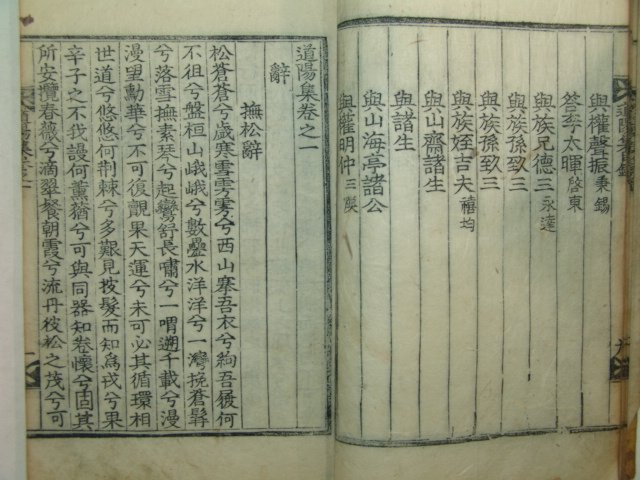 與權聲振秉錫
答李太暉啓東
與族兄德三永達
與族孫致三
與族孫致三
與族姪吉夫禧均
與諸生
與山齋諸生
與山海亭諸公
與權明仲三燮
道陽集卷之一
辭
撫松辭
松蒼蒼兮歲寒雪雰雰兮西山搴吾衣兮絇吾履何
不徂兮盤桓山峨峨兮數疊水洋洋兮一灣挽蒼髯
兮落雪撫素琴兮起鸞舒長嘯兮一喟遡千載兮漫
漫望勳華兮不可復覯果天運兮未可必其循環相
世道兮悠悠何荊棘兮多艱見披髮而知為戎兮果
辛子之不我謾何薰蕕兮可與同器知卷懷兮固其
所安攬春薇兮滴翠餐朝霞兮流丹彼松之茂兮可